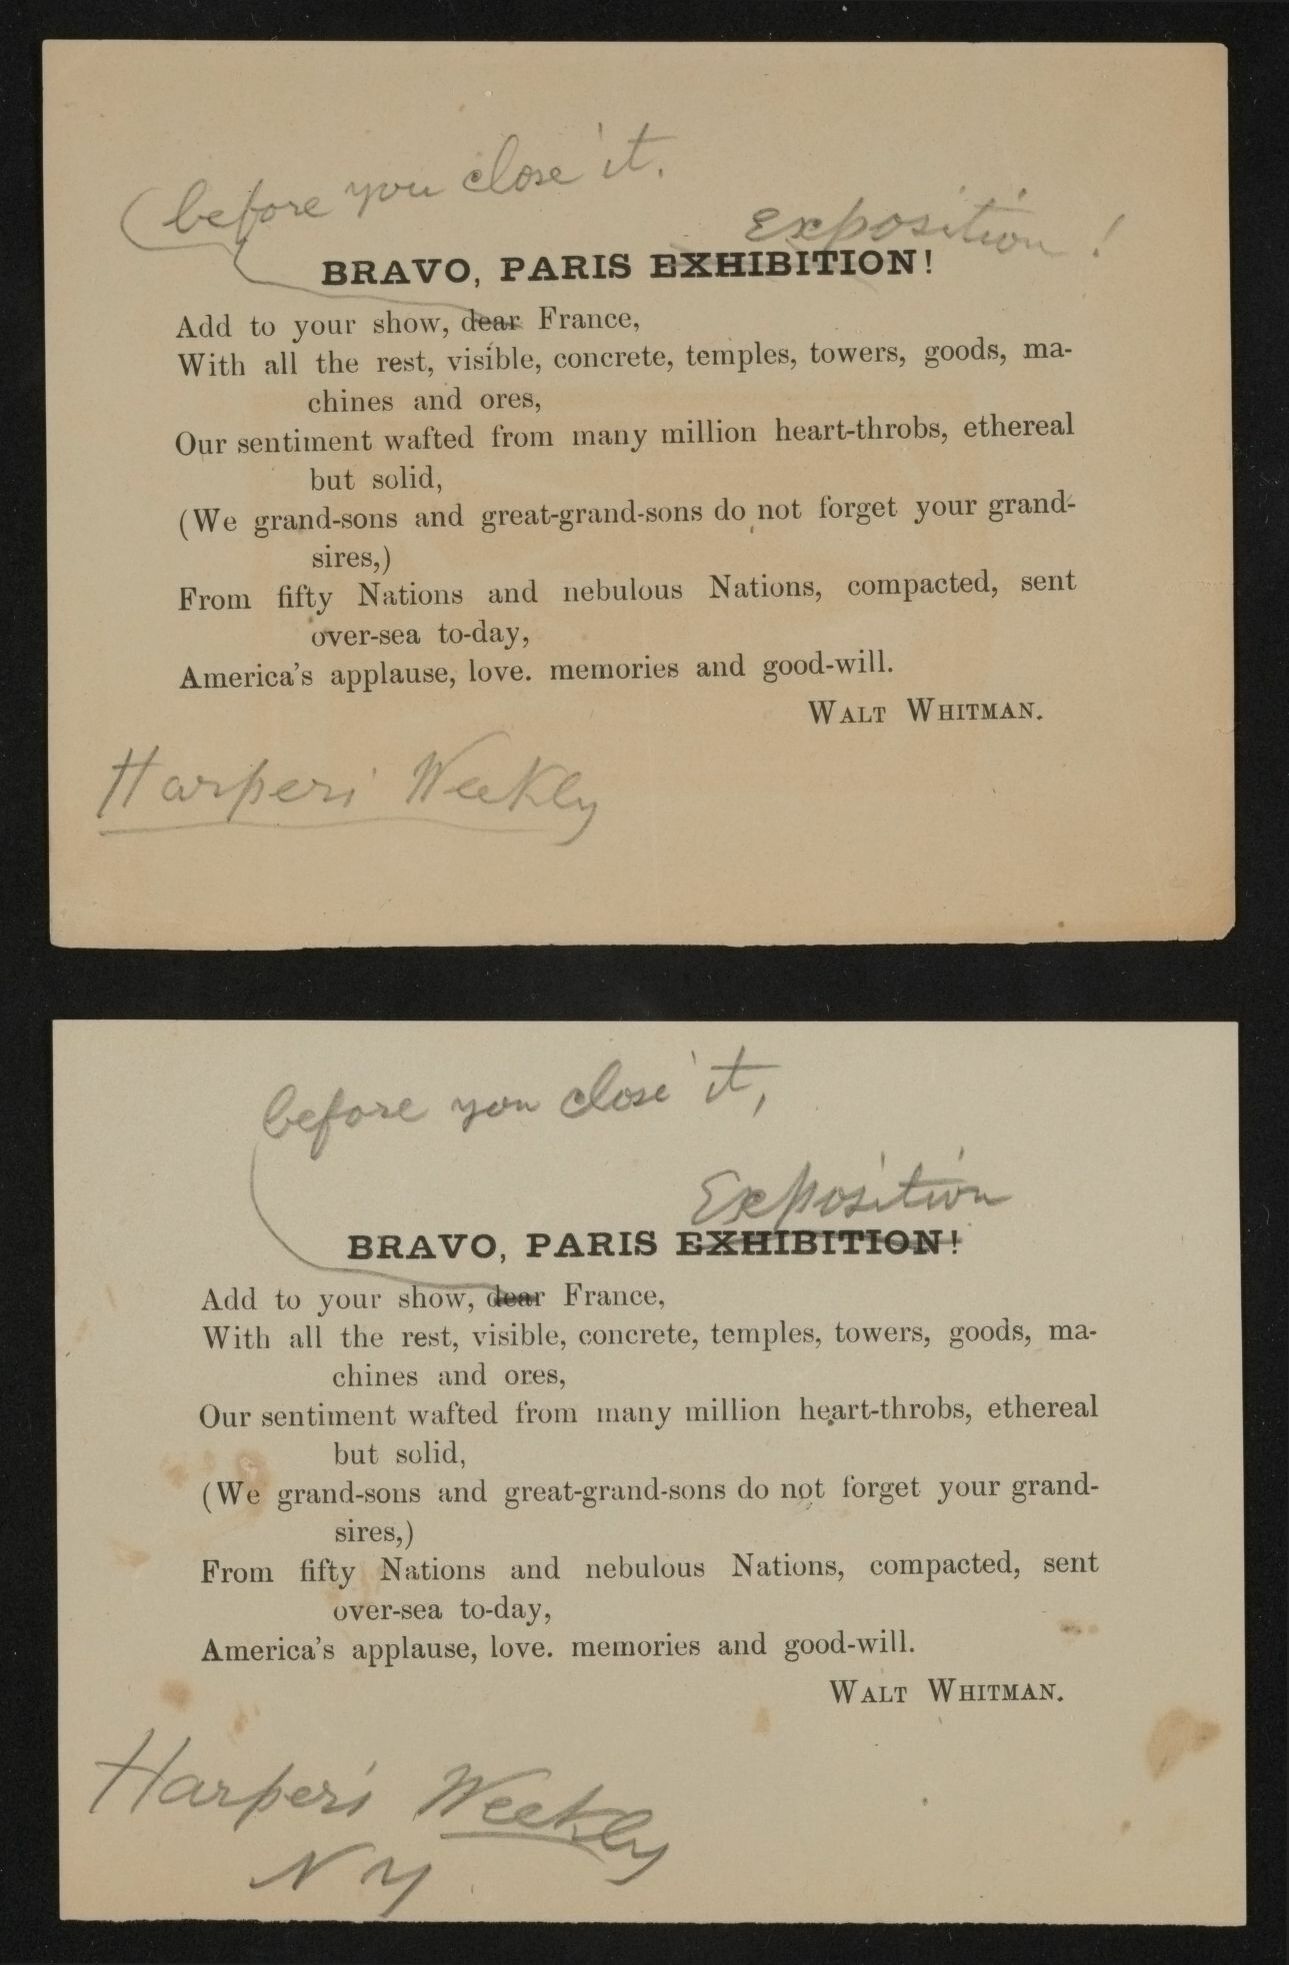 before you close it.
Exposition!
BRAVO, PARIS EXHIBITION!
Add to your show, dear France,
With all the rest, visible, concrete, temples, towers, goods, ma-
chines and ores,
Our sentiment wafted from many million heart-throbs, ethereal
but solid,
(We grand-sons and great-grand-sons do not forget your grand-
sires,)
From fifty Nations and nebulous Nations, compacted, sent
over-sea to-day,
America's applause, love. memories and good-will.
WALT WHITMAN.
Harper's Weekly
before you close it,
Exposition
BRAVO, PARIS EXHIBITION!
Add to your show, dear France,
With all the rest, visible, concrete, temples, towers, goods, ma-
chines and ores,
Our sentiment wafted from many million heart-throbs, ethereal
but solid,
(We grand-sons and great-grand-sons do not forget your grand-
sires,)
From fifty Nations and nebulous Nations, compacted, sent
over-sea to-day,
America's applause, love. memories and good-will.
WALT WHITMAN.
Harper's Weekly
N Y